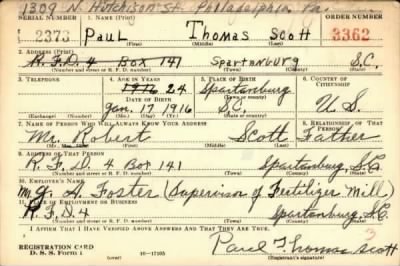 1309 N. Hutchison St. Philadelphia, Pa.
SERIAL NUMBER 1. NAME (Print) ORDER NUMBER
2373 Paul Thomas Scott 3362
(First) (Middle) (Last)
2. ADDRESS (Print)
R.F.D. 4 Box 141 Spartanburg S.C.
(Number and street or R. F. D. number) (Town) (County) (State)
3. TELEPHONE 4. AGE IN YEARS 5. PLACE OF BIRTH 6. COUNTRY OF CITIZENSHIP
1916 24 Spartanburg
DATE OF BIRTH (Town or county)
Jan. 17, 1916 S.C. U.S.
(Exchange) (Number) (Mo.) (Day) (Yr.) (State or country)
7. NAME OF PERSON WHO WILL ALWAYS KNOW YOUR ADDRESS 8. RELATIONSHIP OF THAT PERSON
Mr. Robert Scott Father
(Mr., Mrs., Miss) (First) (Middle) (Last)
9. ADDRESS OF THAT PERSON
R.F.D. 4 Box 141 Spartanburg, S.C.
(Number and street or R. F. D. number) (Town) (County) (State)
10. EMPLOYER'S NAME
Foster (Supervisor of Fertilizer Mill)
11. PLACE OF EMPLOYMENT OR BUSINESS
R.F.D. 4 Spartanburg, S.C.
(Number and street or R. F. D. number) (Town) (County) (State)
I AFFIRM THAT I HAVE VERIFIED ABOVE ANSWERS AND THAT THEY ARE TRUE.
3
REGISTRATION CARD
D. S. S. Form 1 (over) 16—17105 Paul Thomas Scott
(Registrant's signature)